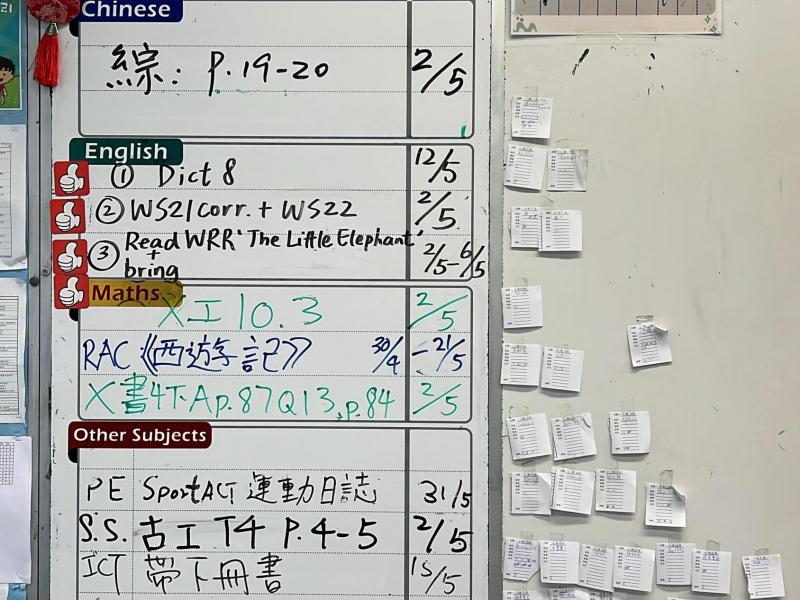 Chinese
綜: p.19-20 2/5
English
① Dict 8 12/5
② WS21corr. + WS22 2/5
③ Read WRR 'The Little Elephant'
+ 2/5-6/5
bring
Maths
X 工10.3 2/5
RAC《西遊記》 30/4 - 21/5
X 書4下A p.87Q13, p.84 2/5
Other Subjects
PE SportACT 運動日誌 31/5
S.S. 古工 T4 P.4-5 2/5
ICT 帶下冊書 15/5